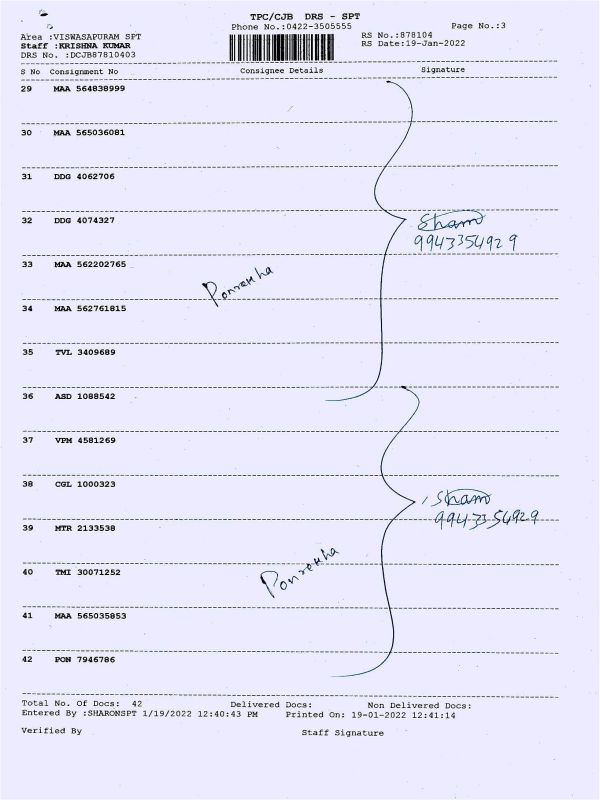 TPC/CJB DRS - SPT
Phone No.:0422-3505555 Page No.:3
Area :VISWASAPURAM SPT RS No.:878104
Staff :KRISHNA KUMAR RS Date:19-Jan-2022
DRS No. :DCJB87810403
S No Consignment No Consignee Details Signature
29 MAA 564838999
30 MAA 565036081
31 DDG 4062706
32 DDG 4074327
Sham
9943354929
33 MAA 562202765
34 MAA 562761815
35 TVL 3409689
36 ASD 1088542
37 VPM 4581269
38 CGL 1000323
Sham
9943354929
39 MTR 2133538
40 TMI 30071252
41 MAA 565035853
42 PON 7946786
Total No. Of Docs: 42 Delivered Docs: Non Delivered Docs:
Entered By :SHARONSPT 1/19/2022 12:40:43 PM Printed On: 19-01-2022 12:41:14
Verified By Staff Signature